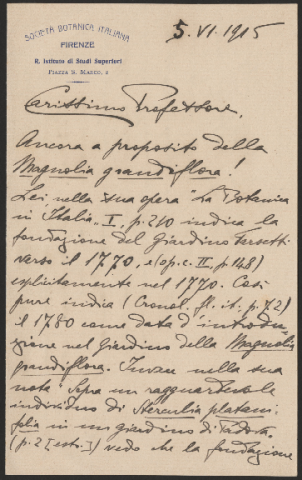 SOCIETÀ BOTANICA ITALIANA
FIRENZE
R. Istituto di Studi Superiori
PIAZZA S. MARCO, 2
5. VI. 1915
Carissimo Professore,
Ancora a proposito della
Magnolia grandiflora!
Lei, nella sua opera "La Botanica
in Italia" I, p. 210 indica la
fondazione del Giardino Farsetti
verso il 1770, e (op. c. II, p. 148)
esplicitamente nel 1770. Così
pure indica (Cronol. fl. it. p. 72)
il 1780 come data d'introdu-
zione nel Giardino della Magnolia
grandiflora. Invece nella sua
nota "Sopra un ragguardevole
individuo di Sterculia platani-
folia in un giardino di Padova"
(p. 2 [estr.]) vedo che la fondazione